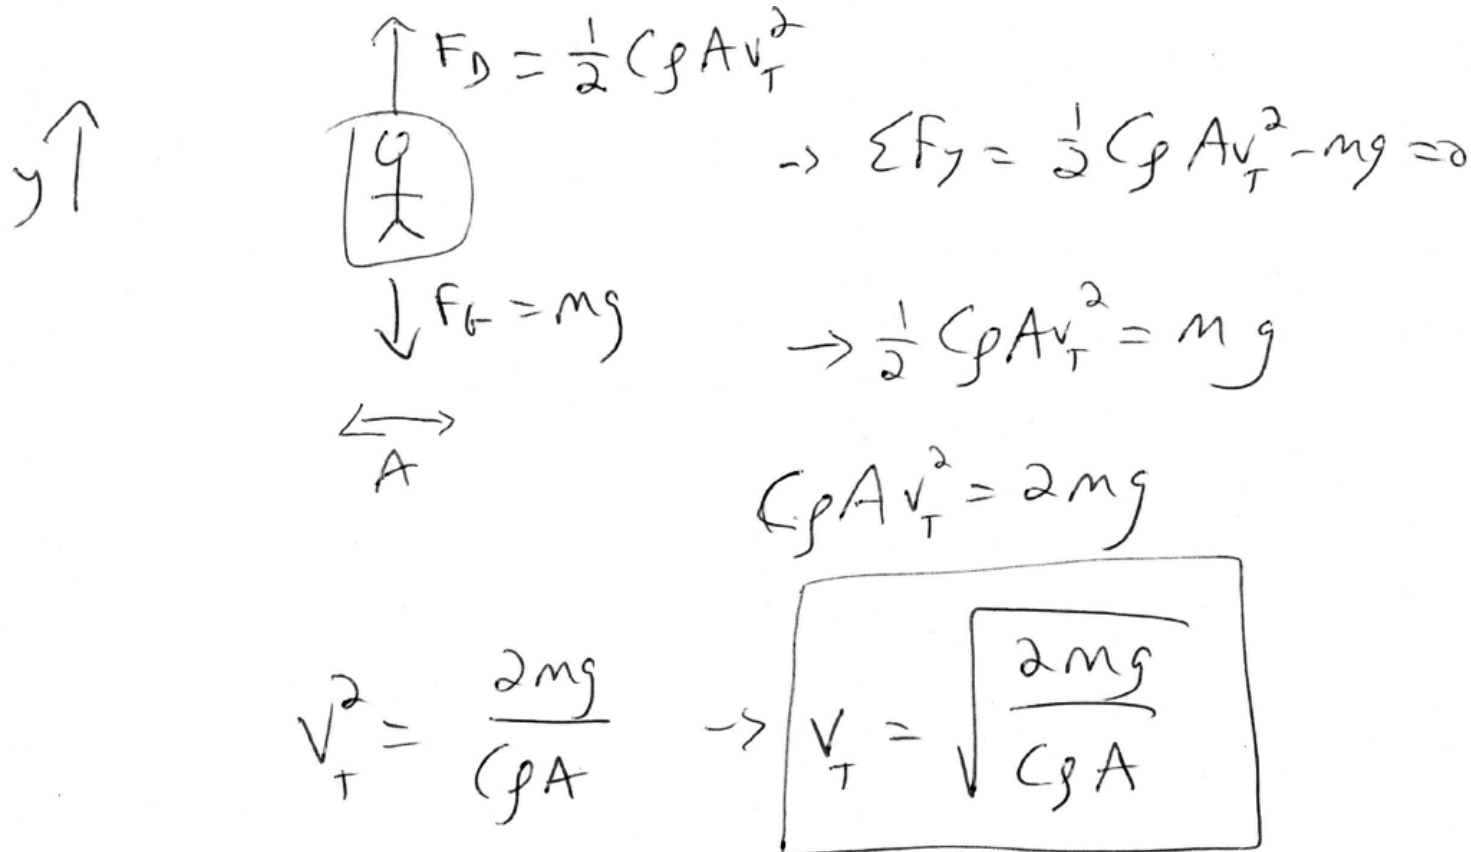 F_D = 1/2 CρAv_T^2
y
→ ΣF_y = 1/2 CρAv_T^2 - mg = 0
F_G = mg
→ 1/2 CρAv_T^2 = mg
A
CρAv_T^2 = 2mg
v_T^2 = 2mg/CρA → v_T = √(2mg/CρA)